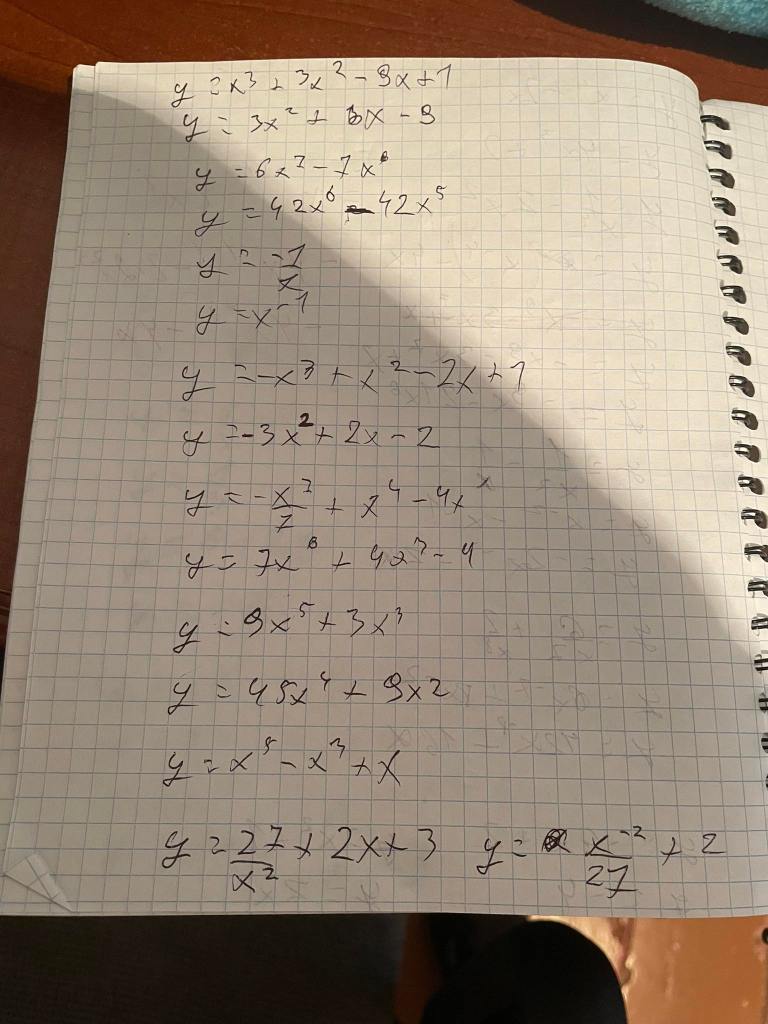 y = x³ + 3x² - 9x + 1
y = 3x² + 6x - 9
y = 6x⁷ - 7x⁶
y = 42x⁶ - 42x⁵
y = -1/x
y = x⁻¹
y = -x³ + x² - 2x + 1
y = -3x² + 2x - 2
y = -x⁷/7 + x⁴ - 4x
y = 7x⁶ + 4x³ - 4
y = 9x⁵ + 3x³
y = 45x⁴ + 9x2
y = x⁵ - x³ + x
y = 27/x² + 2x + 3 y = x⁻²/27 + 2